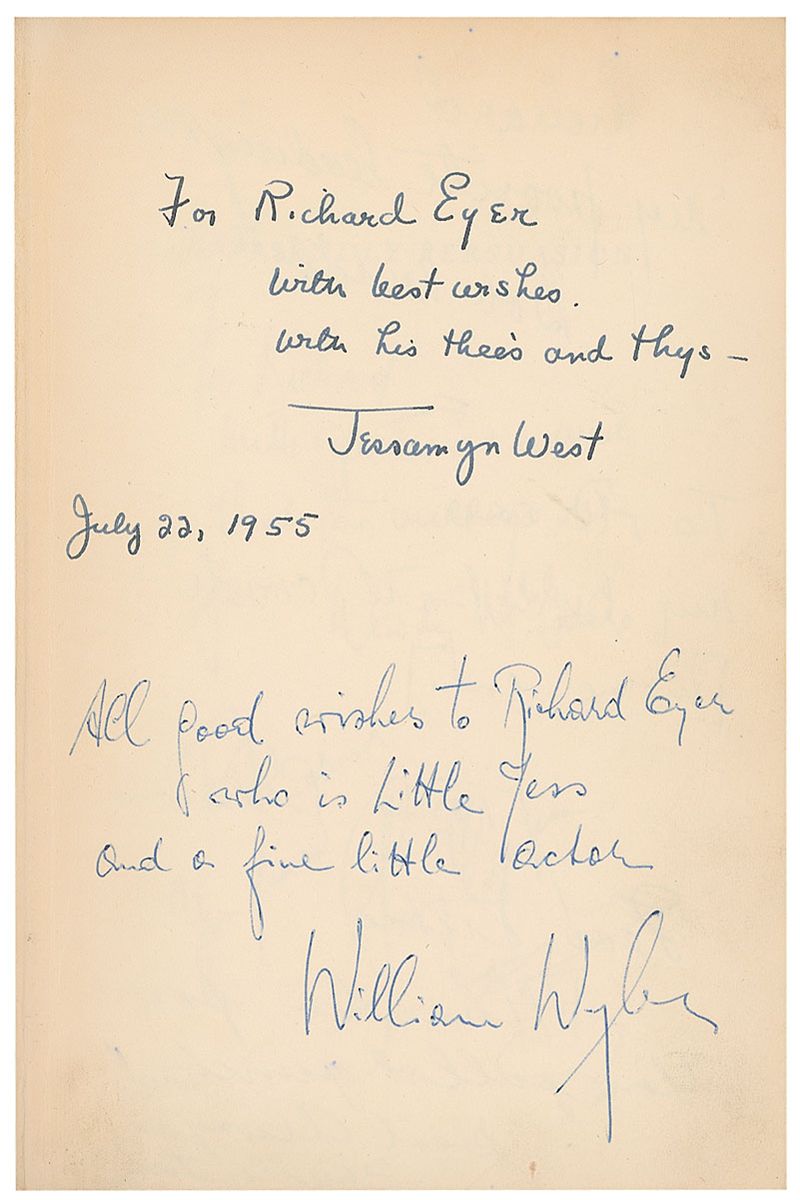 For Richard Eyer
with best wishes.
with his thee's and thys –
Jessamyn West
July 22, 1955
All good wishes to Richard Eyer
who is Little Jess
and a fine little actor
William Wyler